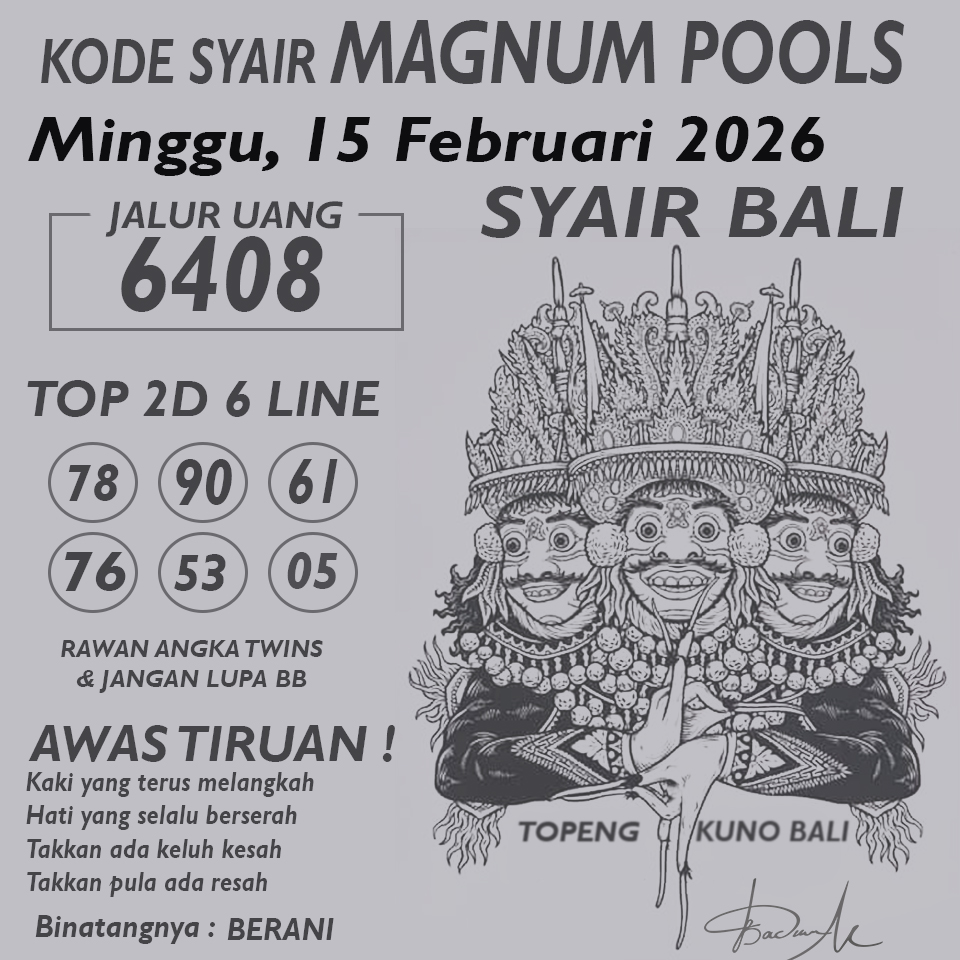 KODE SYAIR MAGNUM POOLS
Minggu, 15 Februari 2026
SYAIR BALI
JALUR UANG
6408
TOP 2D 6 LINE
78 90 61
76 53 05
RAWAN ANGKA TWINS
& JANGAN LUPA BB
AWAS TIRUAN !
Kaki yang terus melangkah
Hati yang selalu berserah
Takkan ada keluh kesah
Takkan pula ada resah
Binatangnya : BERANI
TOPENG KUNO BALI